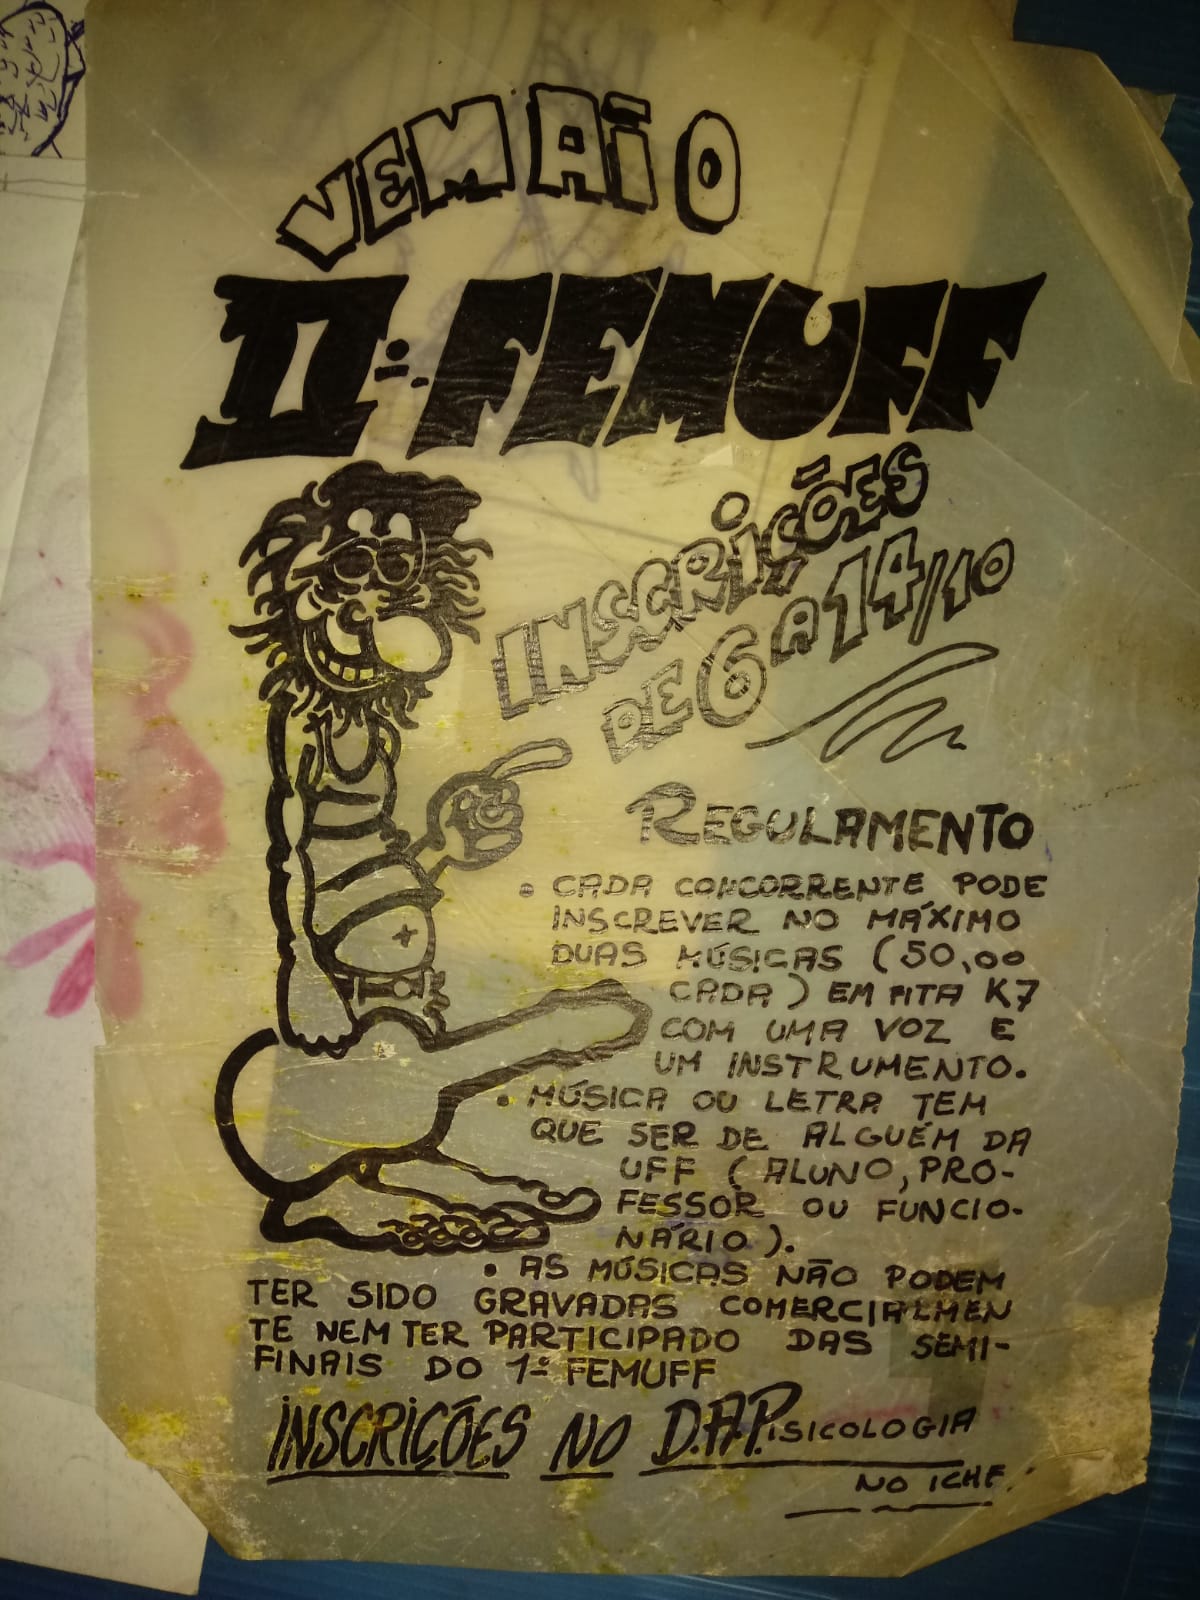 VEM AÍ O
IIº FEMUFF
INSCRIÇÕES
DE 6 A 14/10
REGULAMENTO
• CADA CONCORRENTE PODE
INSCREVER NO MÁXIMO
DUAS MÚSICAS (50,00
CADA) EM FITA K7
COM UMA VOZ E
UM INSTRUMENTO.
• MÚSICA OU LETRA TEM
QUE SER DE ALGUÉM DA
UFF (ALUNO, PRO-
FESSOR OU FUNCIO-
NÁRIO).
• AS MÚSICAS NÃO PODEM
TER SIDO GRAVADAS COMERCIALMEN
TE NEM TER PARTICIPADO DAS SEMI-
FINAIS DO 1º FEMUFF
INSCRIÇÕES NO D.A.P.ISICOLOGIA
NO ICHF.